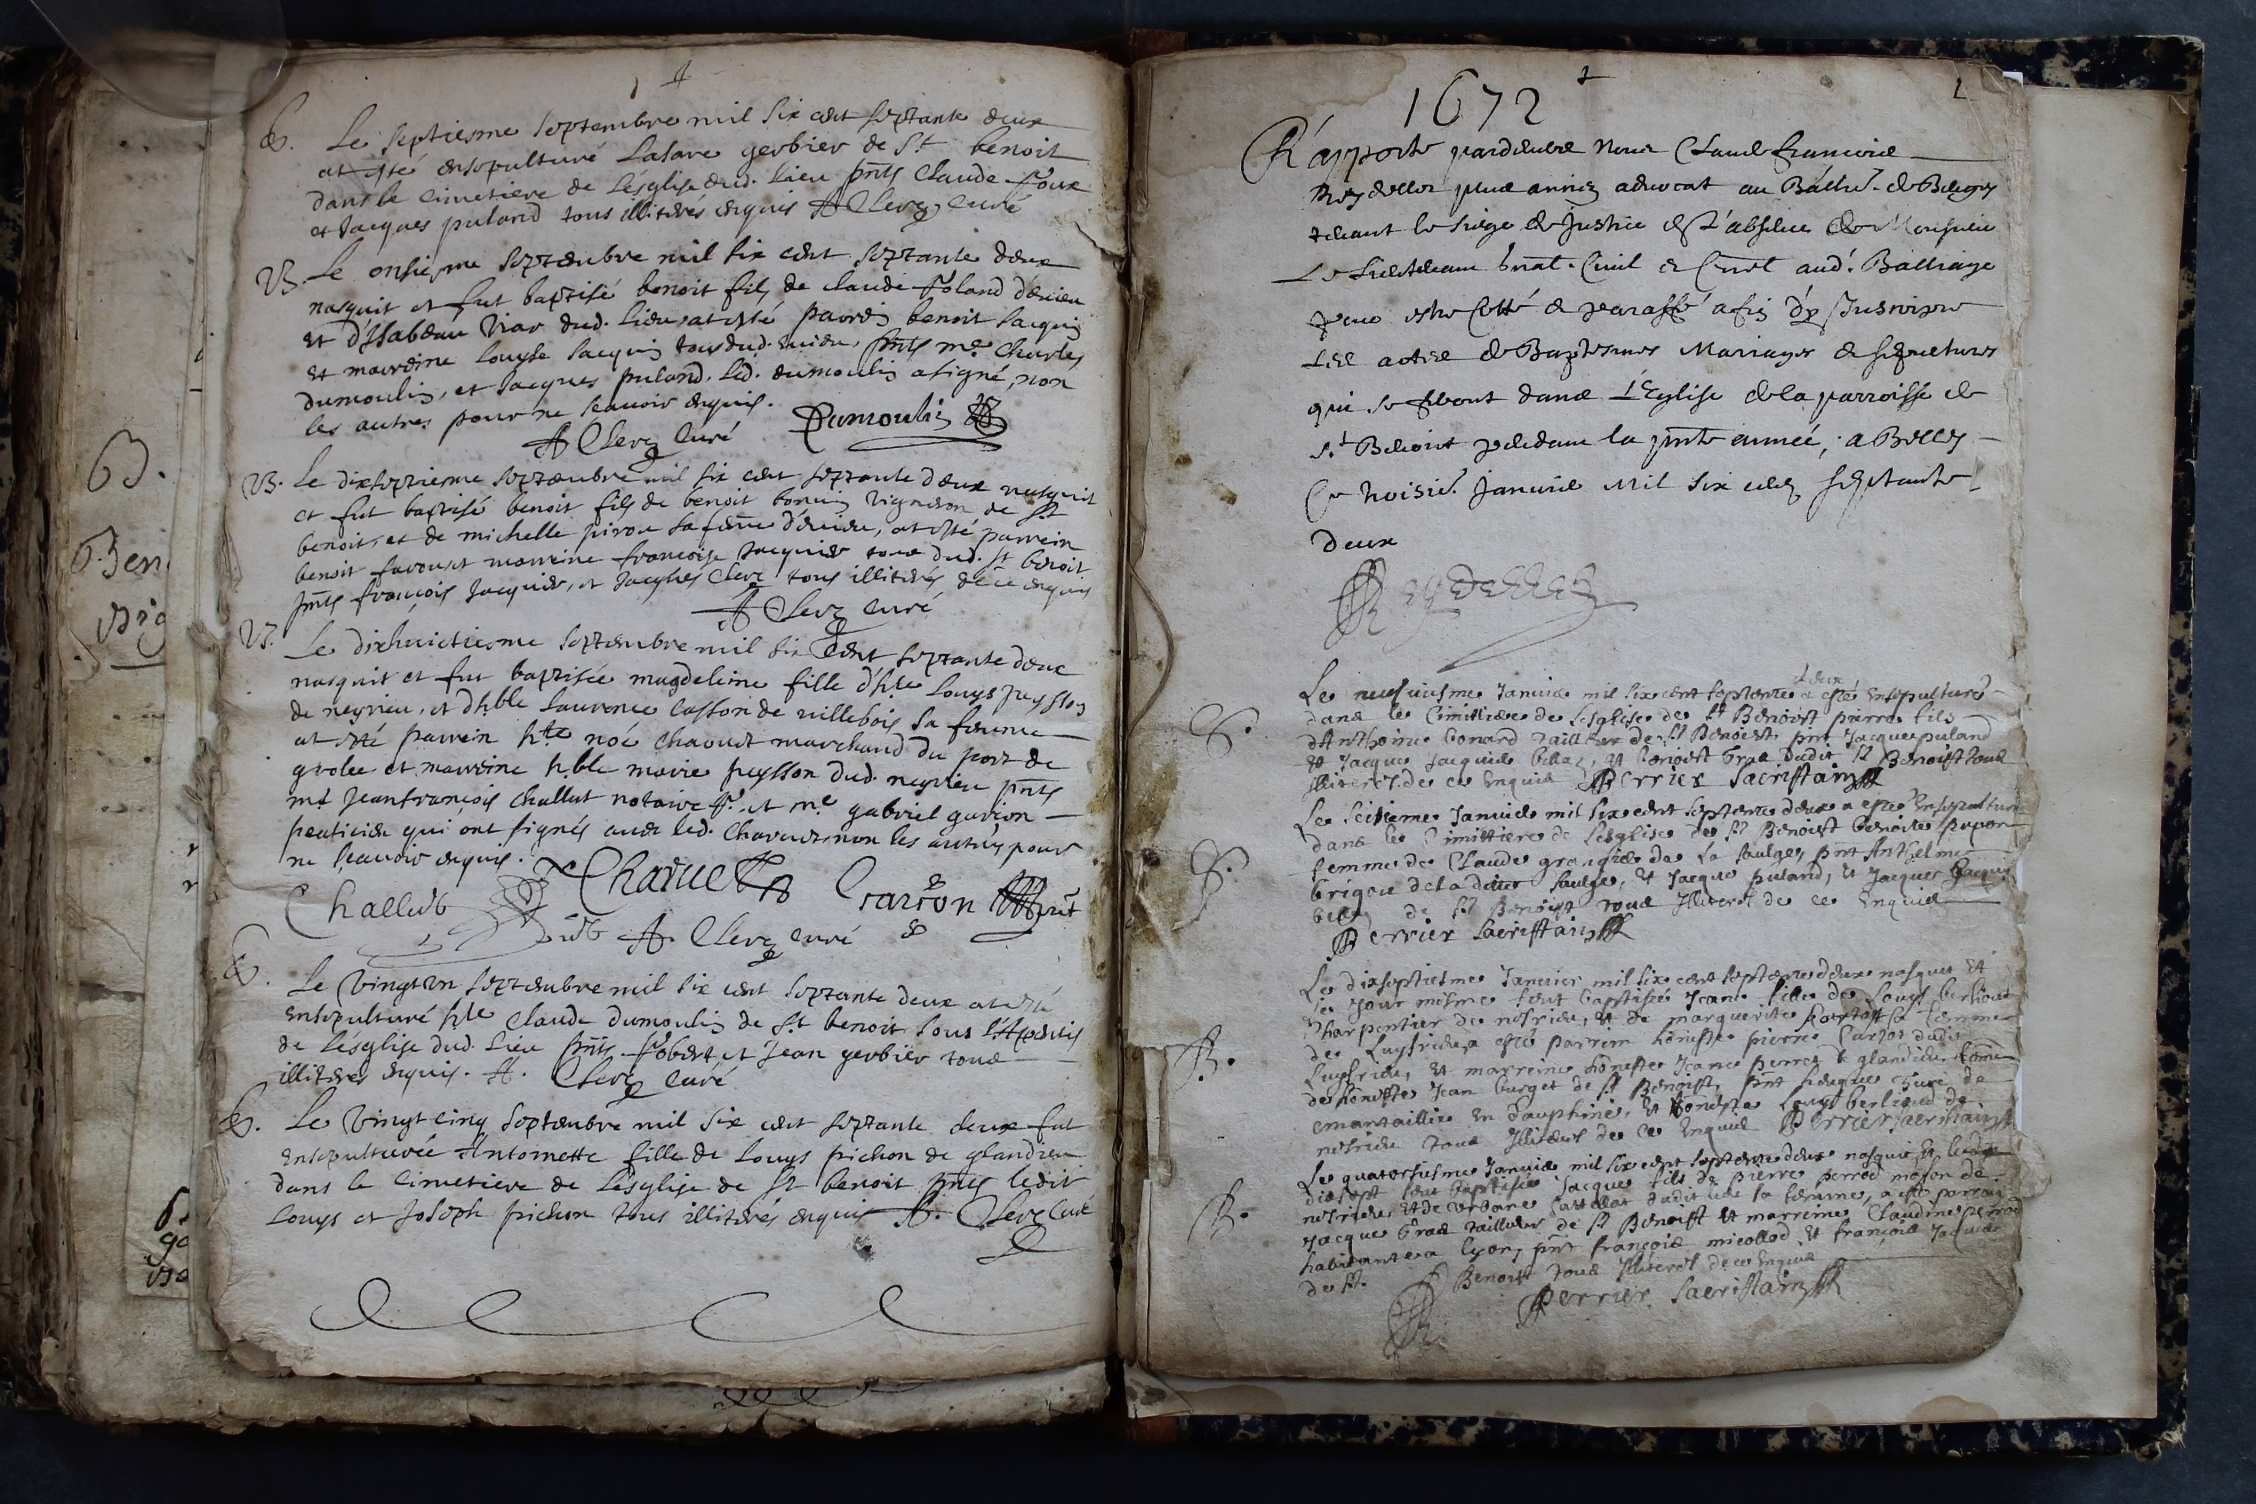 S. Le septiesme septembre mil six cent septante deux
at esté ensepulturé Lasare gerbier de St benoit
dans le cimetiere de Lésglise dud. lieu pnts Claude foux
et Jacques puland tous illiterés enquis A Clerc curé
B. Le onsiesme septembre mil six cent septante deux
nasquit et fut baptisé benoit fils de claude foland
et d'Isabeau viar dud. lieu, at esté parrein benoit Jacquin
et marreine Louyse Jacquin tous dud. pnts me Charles
dumoulin, et Jacques puland. Led. dumoulin a signé, non
les autres pour ne scauoir enquis. Dumoulin
A Clerc Curé
B. Le dixseptiesme septembre mil six cent septante deux nasquit
et fut baptisé benoit fils de benoit bonnin vigneron de St
benoit, et de michelle sa feme at esté parrein
benoit et marreine francoise Jacquier tous dud. St benoit
pnts françois Jacquier, et Jacques Clerc tous illiterés de ce enquis
A Clerc curé
B. Le dixhuictiesme septembre mil six cent septante deux
nasquit et fut baptisée magdeleine fille d'hte Louys peysson
de neyrieu, et d'hble Laurence casson de villebois sa femme
at esté parrein hte noé Charuet marchand du port de
grolee et marreine hble marie peysson dud. neyrieu pnts
me Jeanfrancois Challut notaire et me gabriel garron
praticien qui ont signés auec led. Charuet non les autres pour
ne scauoir enquis.
Challut N Charuet Garron pnt
A. Clerc curé
S. Le vingt un septembre mil six cent septante deux at esté
ensepulturé hte Claude dumoulin de St benoit sous
de Lesglise dud. Lieu pnts et Jean gerbier tous
illiteres enquis. A. Clerc curé
S. Le vingt cinq septembre mil six cent septante deux fut
ensepulturée Antoinette fille de Louys pichon de glandieu
dans le cimetiere de Lésglise de St benoit pnts ledit
Louys et Joseph pichon tous illiterés enquis A. Clerc Curé
1672
Rapporté pardeuant Nous Claude François
Reydellet plus antien aduocat au Balliage de Bugey
tenant le siege de Justice en l'absence de Monsieur
Le Lieutenant gnal Ciuil et Crimel aud. Balliage
pour estre cotté et paraffé afin d'y Inscripre
Les actes de Baptesmes Mariages et sepultures
qui se feront dans l'Eglise de la parroisse de
St. Benoist pendant la pnte année, a Belley
Ce troisie. Januier Mil six cens septante
deux
Reydellet
S. Le neufuiesme Januier mil six cent septante deux a esté Ensepulturé
dans le cimittiere de Lesglise de St Benoist pierre fils
d'Anthoine bonard tailleur de St Benoist pnt Jacque puland
et Jacque Jacquier et benoist gras dudit St Benoist tous
Illiteres de ce Enquis Perrier Sacristain
S. Le seisiesme Januier mil six cent septante deux a esté Ensepulturé
dans le Cimittiere de Lesglise de St Benoist benoite pupon
femme de Claude grangier de La saulge, pnt Anthelme
brigou de ladite saulge, et Jacque puland, et Jacques Jacquier
de St Benoist tous Illiteres de ce Enquis
Perrier Sacristain
B. Le dixseptiesme Januier mil six cent septante deux nasquit Et
le Jour mesme feut baptisée Jeane fille de Louys berlioud
Charpentier de neirieu, et de marguerite sa femme
de Luysrieu, a esté parrein honeste pierre dudit
Luysrieu, et marreine honeste Jeane perret de glandieu femme
de honeste Jean burget de St Benoist, pnt de
en dauphiné, et honeste Louys berlioud de
neirieu tous Illiteres de ce Enquis Perrier Sacristain
B. Le quatorsiesme Januier mil six cent septante deux nasquit et le
dixsept feut baptisé Jacque fils de pierre perrod mason de
neirieu, et de dudit lieu sa femme, a esté parrein
Jacque gras tailleur de St Benoist et marreine Claudine perrod
habitante a Lyon, pnt françois micollod, et françois Jacquier
de St. Benoist tous Illiteres de ce Enquis
Perrier Sacristain